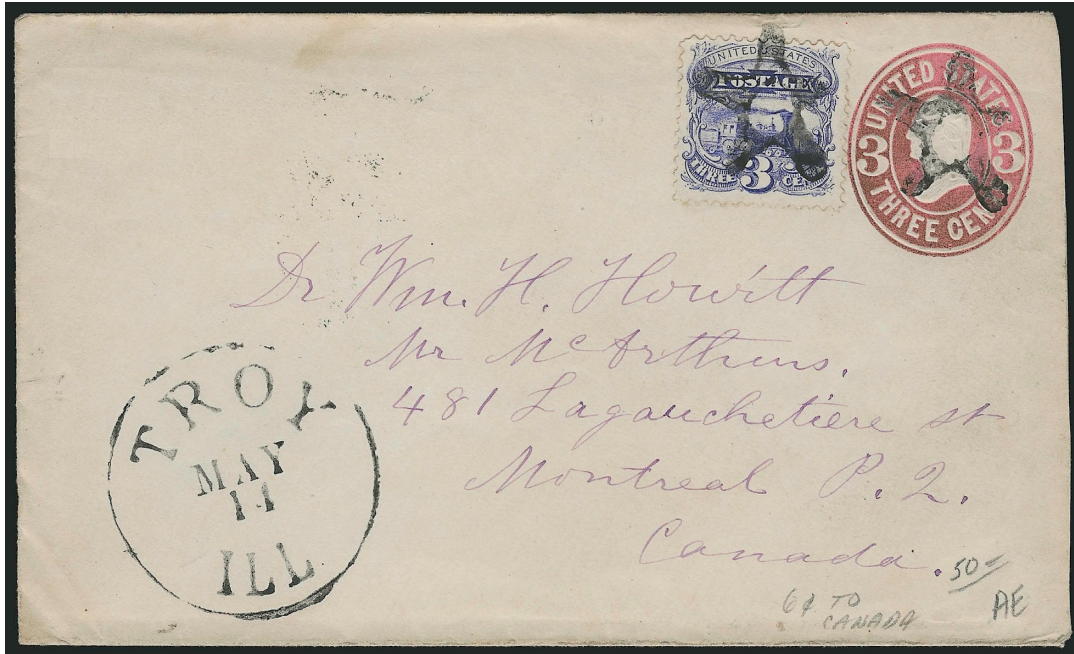 UNITED STATES
POSTAGE
THREE 3 CEN
UNITED STATES
3 3
THREE CEN
Dr Wm. H. Howitt
Mr McArthurs.
481 Lagauchetiere st
Montreal P. Q.
Canada.
TROY
MAY
11
ILL
50-
6¢ TO
CANADA
AE